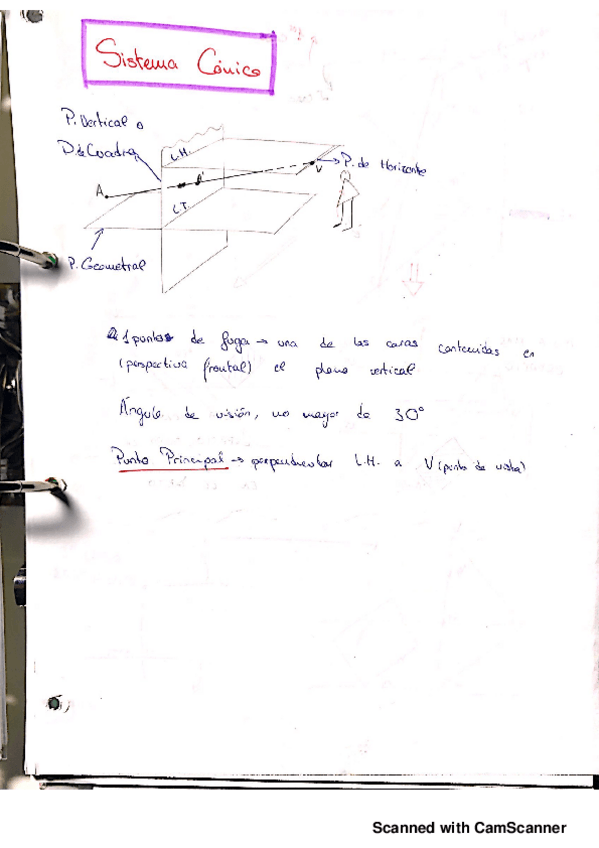 Sistema Cónico
P. Vertical o
P. de Cuadro
L.H.
P. de Horizonte
V
A
A'
L.T.
P. Geometral
1 puntos de fuga → una de las caras contenidas en
(perspectiva frontal) el plano vertical
Ángulo de visión, no mayor de 30°
Punto Principal → perpendicular L.H. a V (punto de vista)
Scanned with CamScanner